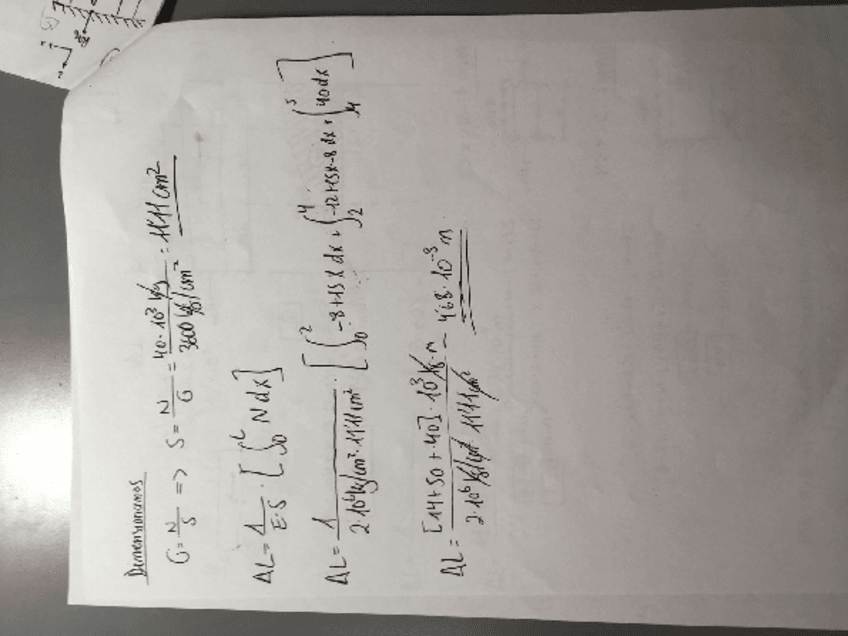 Dimensionamos
G = N/S => S = N/G = 40·10³ kg / 3600 kg/cm² = 11'11 cm²
ΔL = 1/E·S · [∫₀ᴸ N dx]
ΔL = 1 / 2·10⁶ kg/cm² · 11'11 cm² · [∫₀² -8+15x dx + ∫₂⁴ -12+15x-8 dx + ∫₄⁵ 40 dx]
ΔL = [14+50+40]·10³ kg·m / 2·10⁶ kg/cm² · 11'11 cm² = 4'68·10⁻³ m